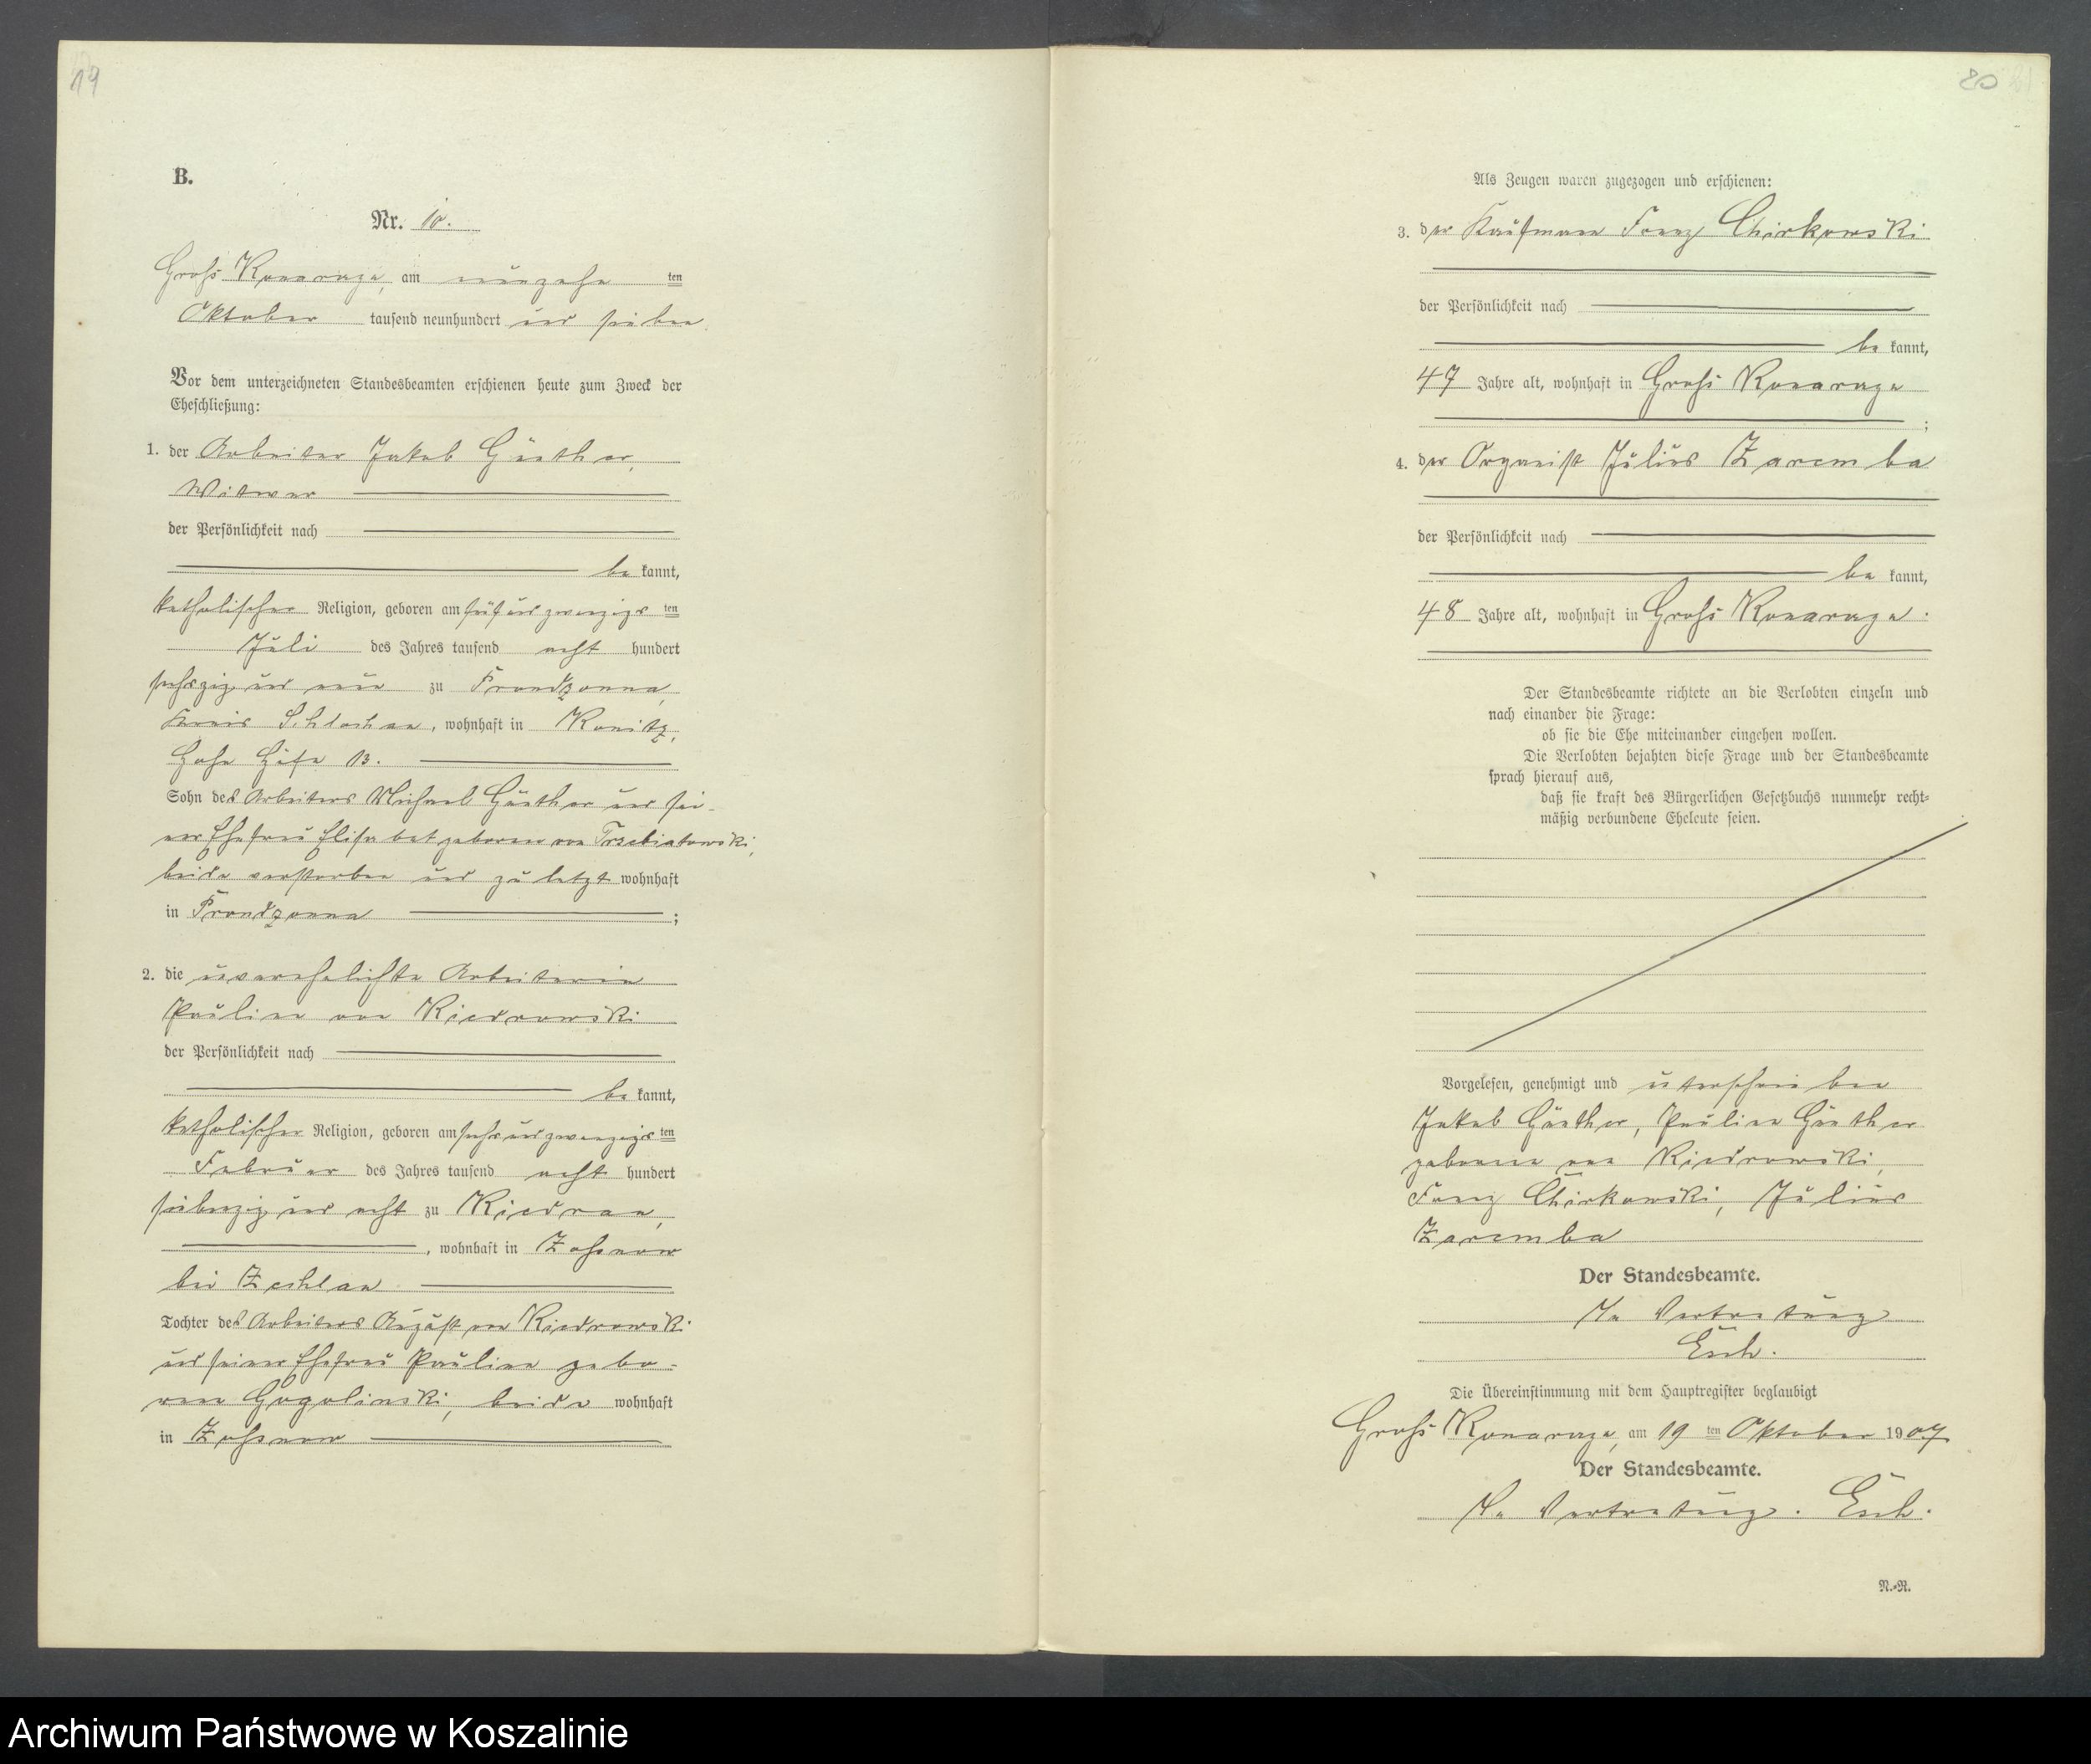 19
B.
Nr. 10.
Groß Konarzyn, am neunzehn ten
Oktober tausend neunhundert und sieben
Vor dem unterzeichneten Standesbeamten erschienen heute zum Zweck der
Eheschließung:
1. der Arbeiter Jakob Günther,
Witwer
der Persönlichkeit nach
be kannt,
katholischer Religion, geboren am fünfundzwanzigs ten
Juli des Jahres tausend acht hundert
sechszig und neun zu Prondzonna,
Kreis Schlochau, wohnhaft in Konitz,
Hohe Höfe 13.
Sohn des Arbeiters Michael Günther und sei-
ner Ehefrau Elisabet geborene von Trzebiatowski,
beide verstorben und zuletzt wohnhaft
in Prondzonna ;
2. die unverehelichte Arbeiterin
Pauline von Kiedrowski
der Persönlichkeit nach
be kannt,
katholischer Religion, geboren am sechsundzwanzigs ten
Februar des Jahres tausend acht hundert
siebenzig und acht zu Kiedrau,
, wohnhaft in Zoßnow
bei Zechlau
Tochter des Arbeiters August von Kiedrowski
und seiner Ehefrau Pauline gebo-
rene Gogolinski, beide wohnhaft
in Zoßnow
80
Als Zeugen waren zugezogen und erschienen:
3. der Kaufmann Franz Chirkowski
der Persönlichkeit nach
be kannt,
47 Jahre alt, wohnhaft in Groß Konarzyn
;
4. der Organist Julius Zaremba
der Persönlichkeit nach
be kannt,
48 Jahre alt, wohnhaft in Groß Konarzyn.
Der Standesbeamte richtete an die Verlobten einzeln und
nach einander die Frage:
ob sie die Ehe miteinander eingehen wollen.
Die Verlobten bejahten diese Frage und der Standesbeamte
sprach hierauf aus,
daß sie kraft des Bürgerlichen Gesetzbuchs nunmehr recht-
mäßig verbundene Eheleute seien.
Vorgelesen, genehmigt und unterschrieben
Jakob Günther, Pauline Günther
geborene von Kiedrowski,
Franz Chirkowski, Julius
Zaremba
Der Standesbeamte.
In Vertretung
Esch.
Die Übereinstimmung mit dem Hauptregister beglaubigt
Groß Konarzyn, am 19 ten Oktober 1907
Der Standesbeamte.
In Vertretung. Esch.
N.-R.
Archiwum Państwowe w Koszalinie